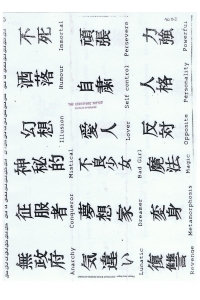 不死
Immortal
頑張
Persevere
力強
Powerful
洒落
Humour
自粛
Self control
人格
Personality
幻想
Illusion
愛人
Lover
反対
Opposite
神秘的
不良少女
Bad Girl
魔法
Magic
征服者
Conqueror
夢想家
Dreamer
変身
Metamorphosis
無政府
Anarchy
気違い
Lunatic
復讐
Revenge